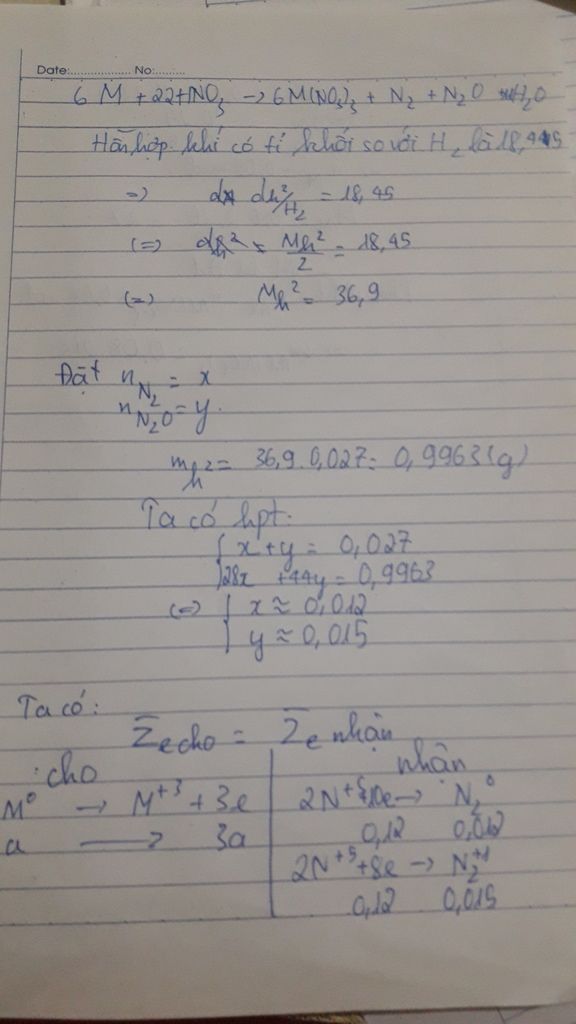 Date:.................... No:..........
6 M + 22HNO3 -> 6M(NO3)3 + N2 + N2O + H2O
Hỗn hợp khí có tỉ khối so với H2 là 18,45
=> dh²/H2 = 18,45
(=) Mh²/2 = 18,45
(=) Mh² = 36,9
Đặt nN2 = x
nN2O = y.
mh² = 36,9.0,027 = 0,9963(g)
Ta có hpt:
{ x+y = 0,027
28x +44y = 0,9963
(=) { x ≈ 0,012
y ≈ 0,015
Ta có:
Σe cho = Σe nhận
cho
M⁰ -> M⁺³ + 3e
a -> 3a
nhận
2N⁺⁵+10e -> N2⁰
0,12 0,012
2N⁺⁵+8e -> N2⁺¹
0,12 0,015